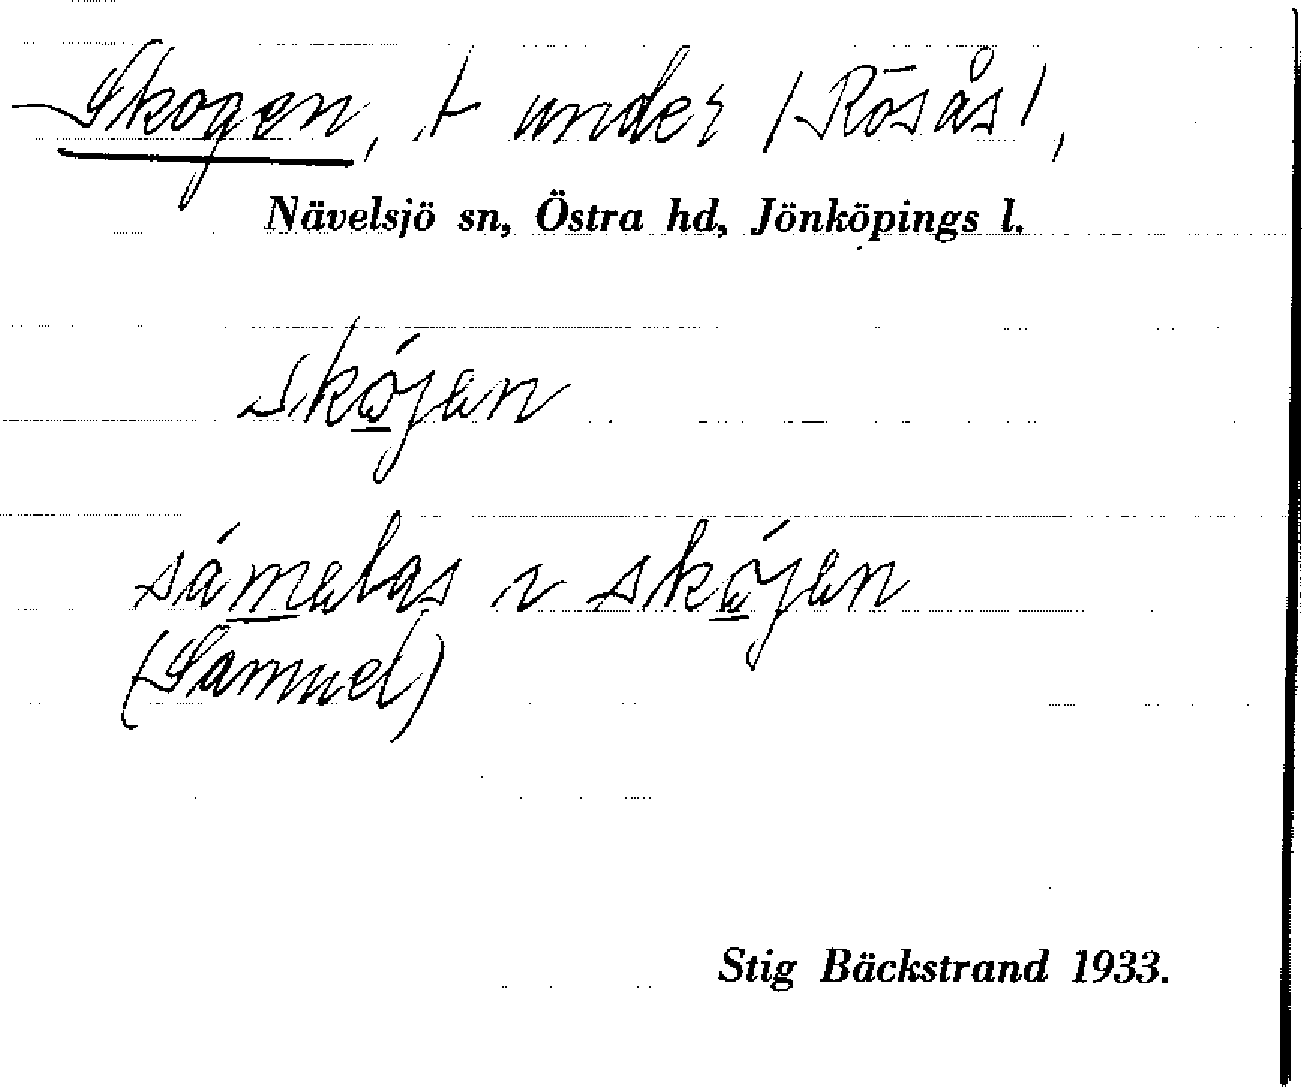 Skogen, t under /Rösås/,
Nävelsjö sn, Östra hd, Jönköpings l.
skójen
sámelas i skójen
(Samuel)
Stig Bäckstrand 1933.